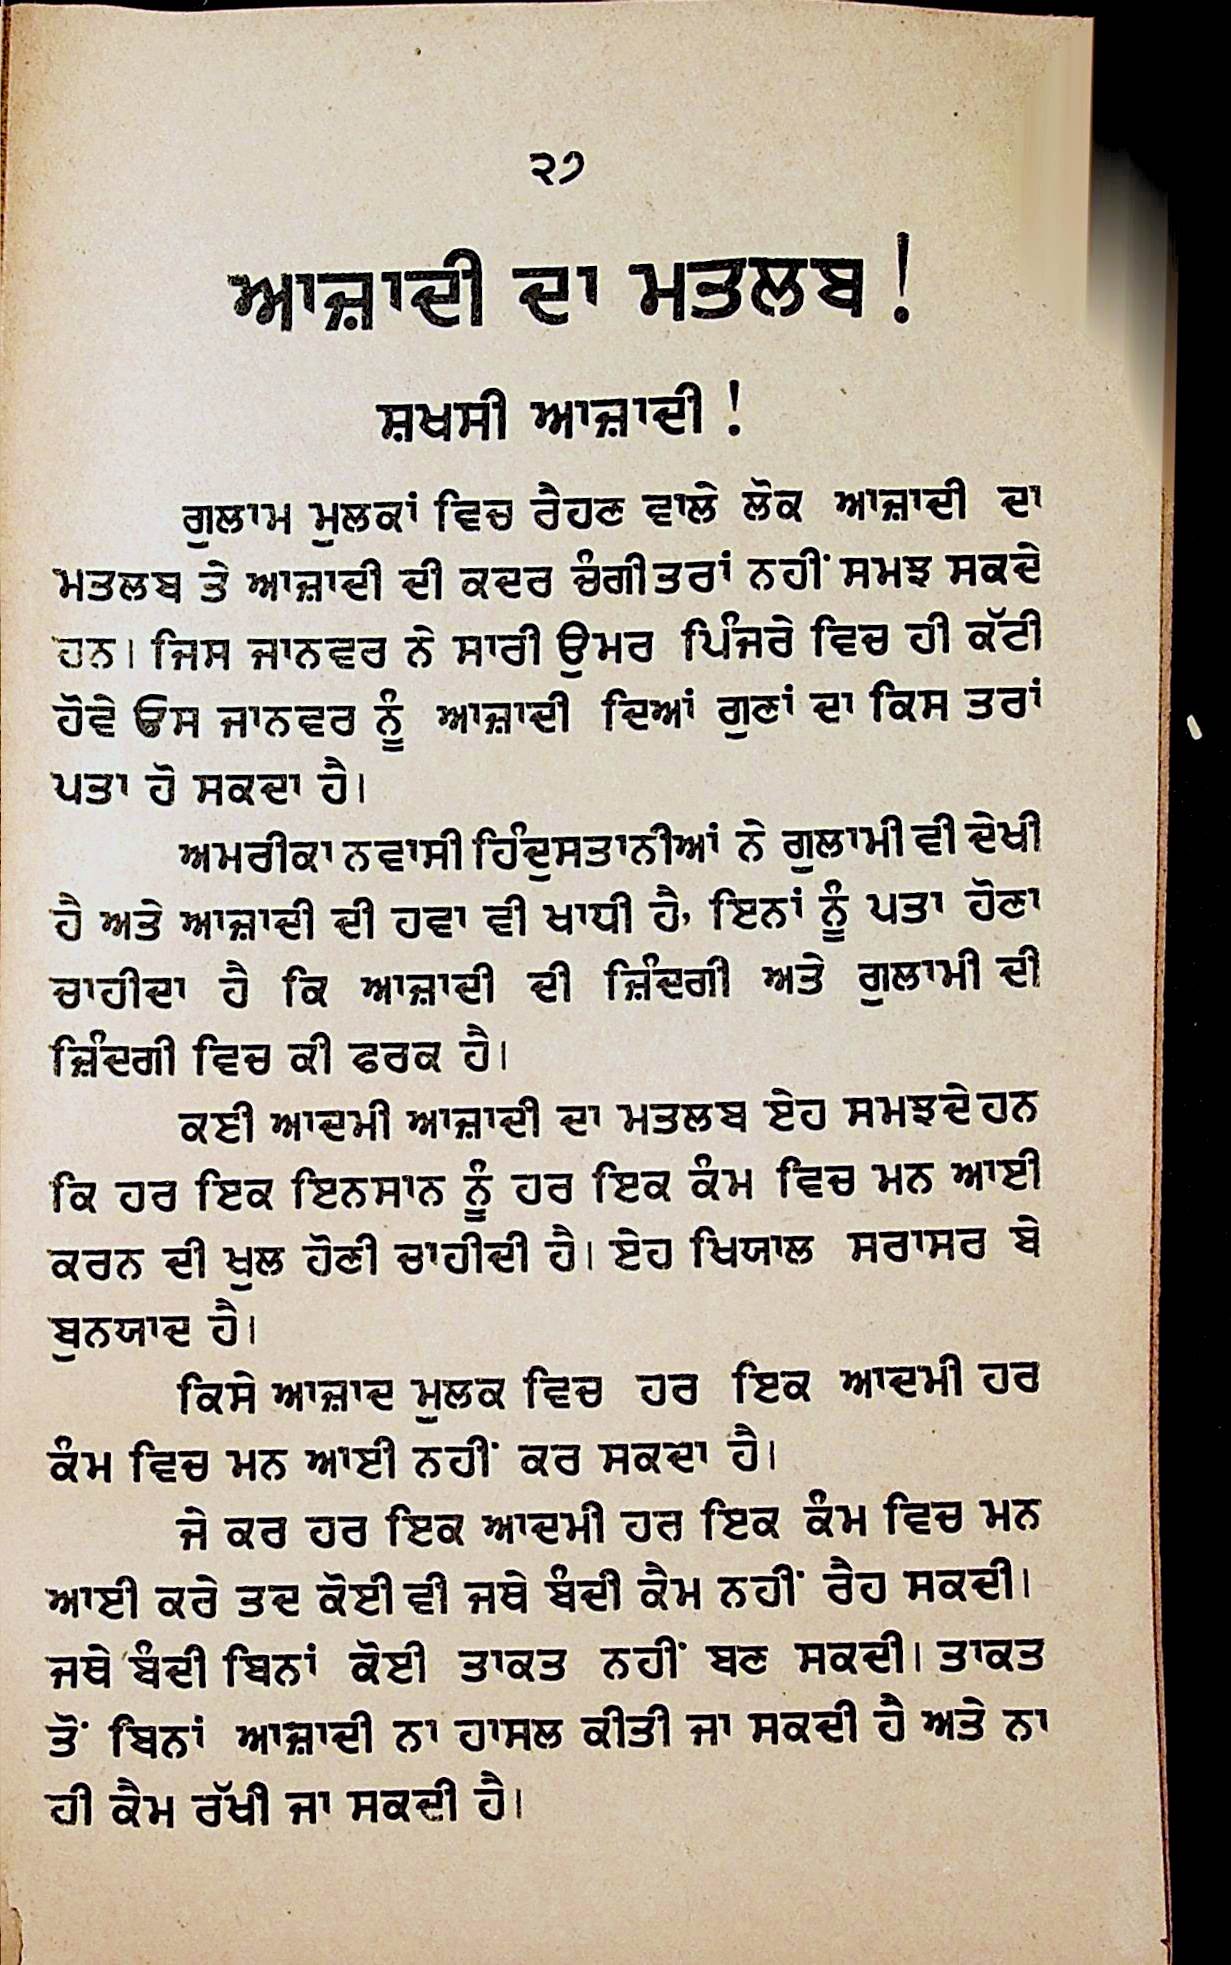 ੨੭
ਆਜ਼ਾਦੀ ਦਾ ਮਤਲਬ !
ਸ਼ਖਸੀ ਆਜ਼ਾਦੀ !
ਗੁਲਾਮ ਮੁਲਕਾਂ ਵਿਚ ਰੈਹਣ ਵਾਲੇ ਲੋਕ ਆਜ਼ਾਦੀ ਦਾ
ਮਤਲਬ ਤੇ ਆਜ਼ਾਦੀ ਦੀ ਕਦਰ ਚੰਗੀ ਤਰਾਂ ਨਹੀਂ ਸਮਝ ਸਕਦੇ
ਹਨ। ਜਿਸ ਜਾਨਵਰ ਨੇ ਸਾਰੀ ਉਮਰ ਪਿੰਜਰੇ ਵਿਚ ਹੀ ਕੱਟੀ
ਹੋਵੇ ਓਸ ਜਾਨਵਰ ਨੂੰ ਆਜ਼ਾਦੀ ਦਿਆਂ ਗੁਣਾਂ ਦਾ ਕਿਸ ਤਰਾਂ
ਪਤਾ ਹੋ ਸਕਦਾ ਹੈ।
ਅਮਰੀਕਾ ਨਵਾਸੀ ਹਿੰਦੁਸਤਾਨੀਆਂ ਨੇ ਗੁਲਾਮੀ ਵੀ ਦੇਖੀ
ਹੈ ਅਤੇ ਆਜ਼ਾਦੀ ਦੀ ਹਵਾ ਵੀ ਖਾਧੀ ਹੈ, ਇਨਾਂ ਨੂੰ ਪਤਾ ਹੋਣਾ
ਚਾਹੀਦਾ ਹੈ ਕਿ ਆਜ਼ਾਦੀ ਦੀ ਜ਼ਿੰਦਗੀ ਅਤੇ ਗੁਲਾਮੀ ਦੀ
ਜ਼ਿੰਦਗੀ ਵਿਚ ਕੀ ਫਰਕ ਹੈ।
ਕਈ ਆਦਮੀ ਆਜ਼ਾਦੀ ਦਾ ਮਤਲਬ ਏਹ ਸਮਝਦੇ ਹਨ
ਕਿ ਹਰ ਇਕ ਇਨਸਾਨ ਨੂੰ ਹਰ ਇਕ ਕੰਮ ਵਿਚ ਮਨ ਆਈ
ਕਰਨ ਦੀ ਖੁਲ ਹੋਣੀ ਚਾਹੀਦੀ ਹੈ। ਏਹ ਖਿਯਾਲ ਸਰਾਸਰ ਬੇ
ਬੁਨਯਾਦ ਹੈ।
ਕਿਸੇ ਆਜ਼ਾਦ ਮੁਲਕ ਵਿਚ ਹਰ ਇਕ ਆਦਮੀ ਹਰ
ਕੰਮ ਵਿਚ ਮਨ ਆਈ ਨਹੀਂ ਕਰ ਸਕਦਾ ਹੈ।
ਜੇ ਕਰ ਹਰ ਇਕ ਆਦਮੀ ਹਰ ਇਕ ਕੰਮ ਵਿਚ ਮਨ
ਆਈ ਕਰੇ ਤਦ ਕੋਈ ਵੀ ਜਥੇ ਬੰਦੀ ਕੈਮ ਨਹੀਂ ਰੈਹ ਸਕਦੀ।
ਜਥੇ ਬੰਦੀ ਬਿਨਾਂ ਕੋਈ ਤਾਕਤ ਨਹੀਂ ਬਣ ਸਕਦੀ। ਤਾਕਤ
ਤੋਂ ਬਿਨਾਂ ਆਜ਼ਾਦੀ ਨਾ ਹਾਸਲ ਕੀਤੀ ਜਾ ਸਕਦੀ ਹੈ ਅਤੇ ਨਾ
ਹੀ ਕੈਮ ਰੱਖੀ ਜਾ ਸਕਦੀ ਹੈ।